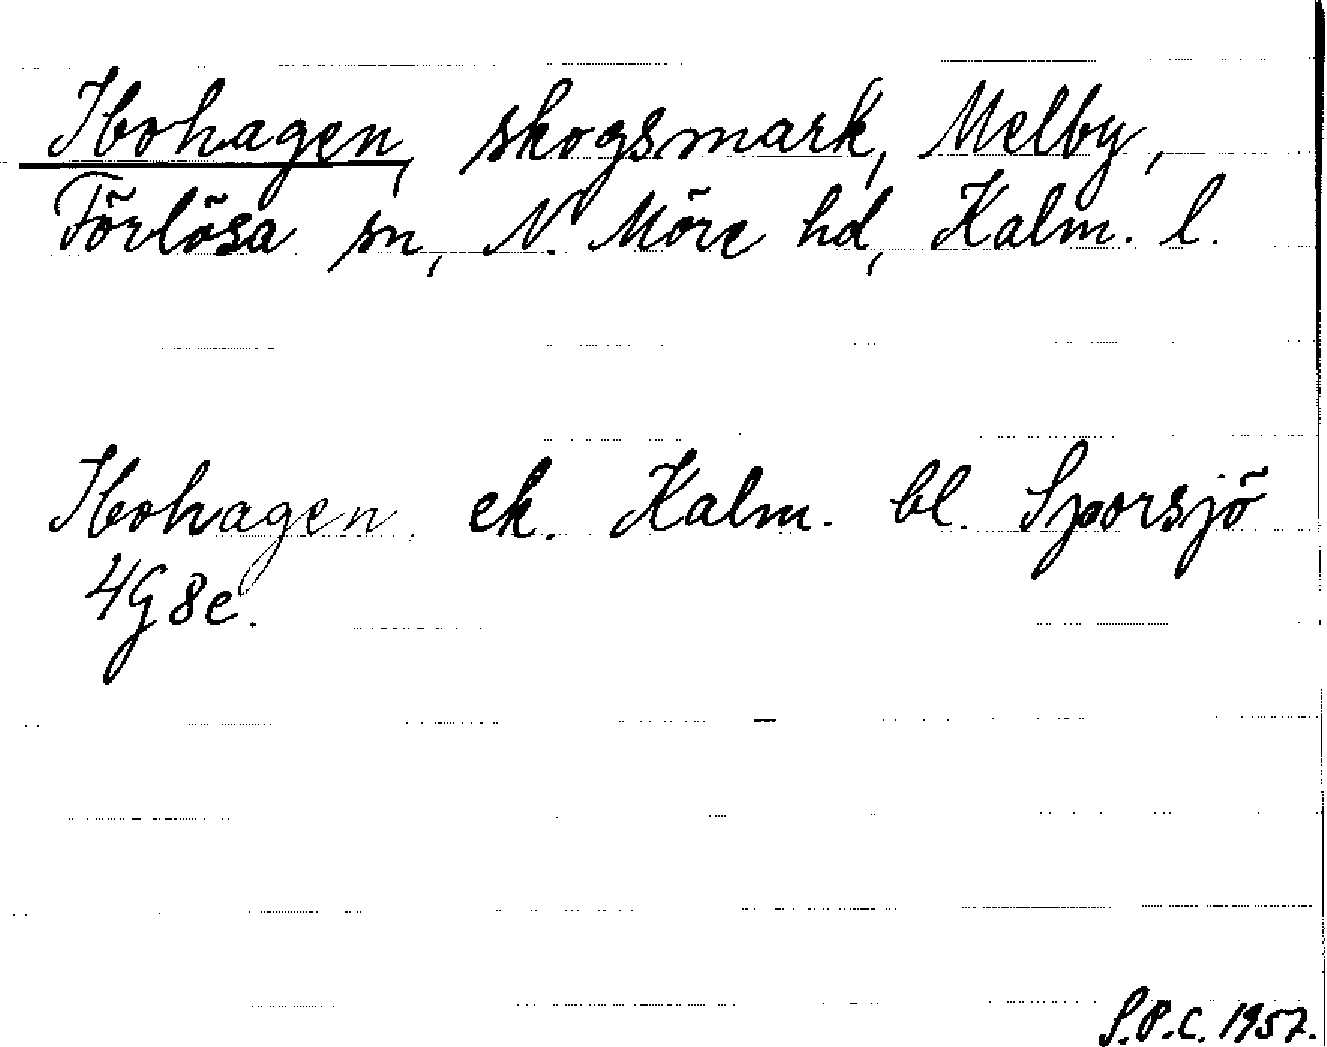 Ibohagen, skogsmark, Melby,
Förlösa sn, N. Möre hd, Kalm. l.
Ibohagen ek. Kalm. bl. Sporsjö
4G8e.
S.P.C. 1957.